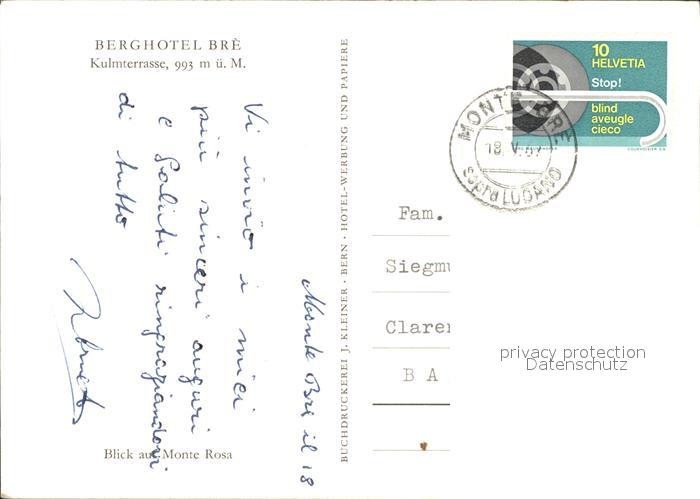 BERGHOTEL BRÈ
Kulmterrasse, 993 m ü. M.
Monte Brè il 18
Vi invio i miei
più sinceri auguri
e saluti ringraziandovi
di tutto
Blick auf Monte Rosa
BUCHDRUCKEREI J. KLEINER · BERN · HOTEL-WERBUNG UND PAPIERE
10
HELVETIA
Stop!
blind
aveugle
cieco
COURVOISIER S.A.
MONTE BRE
18.V.67
SOPRA LUGANO
Fam.
Siegmu
Clarer
BA
privacy protection
Datenschutz